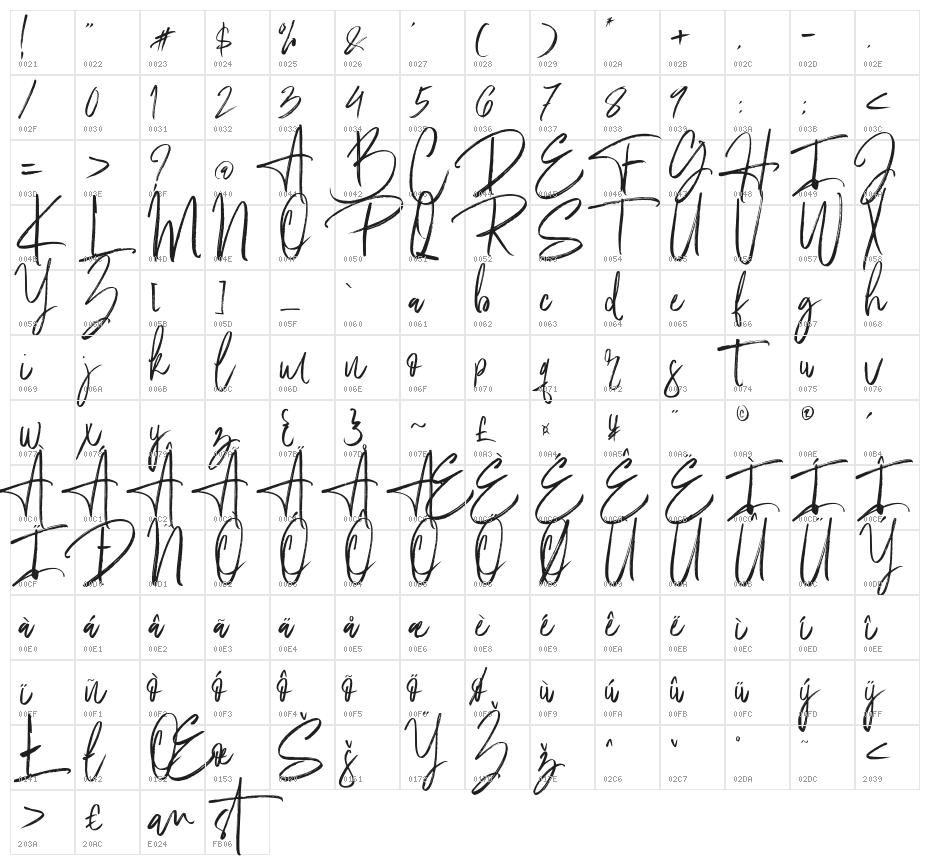 ! " # $ % & ' ( ) * + , - .
0021 0022 0023 0024 0025 0026 0027 0028 0029 002A 002B 002C 002D 002E
/ 0 1 2 3 4 5 6 7 8 9 : ; <
002F 0030 0031 0032 0033 0034 0035 0036 0037 0038 0039 003A 003B 003C
= > ? @ A B C D E F G H I J
003D 003E 003F 0040 0041 0042 0043 0044 0045 0046 0047 0048 0049 004A
K L M N O P Q R S T U V W X
004B 004C 004D 004E 004F 0050 0051 0052 0053 0054 0055 0056 0057 0058
Y Z [ ] _ ` a b c d e f g h
0059 005A 005B 005D 005F 0060 0061 0062 0063 0064 0065 0066 0067 0068
i j k l m n o p q r s t u v
0069 006A 006B 006C 006D 006E 006F 0070 0071 0072 0073 0074 0075 0076
w x y z { } ~ £ ¤ ¥ ¨ © ® ´
0077 0078 0079 007A 007B 007D 007E 00A3 00A4 00A5 00A8 00A9 00AE 00B4
À Á Â Ã Ä Å Æ È É Ê Ë Ì Í Î
00C0 00C1 00C2 00C3 00C4 00C5 00C6 00C8 00C9 00CA 00CB 00CC 00CD 00CE
Ï Ð Ñ Ò Ó Ô Õ Ö Ø Ù Ú Û Ü Ý
00CF 00D0 00D1 00D2 00D3 00D4 00D5 00D6 00D8 00D9 00DA 00DB 00DC 00DD
à á â ã ä å æ è é ê ë ì í î
00E0 00E1 00E2 00E3 00E4 00E5 00E6 00E8 00E9 00EA 00EB 00EC 00ED 00EE
ï ñ ò ó ô õ ö ø ù ú û ü ý ÿ
00EF 00F1 00F2 00F3 00F4 00F5 00F6 00F8 00F9 00FA 00FB 00FC 00FD 00FF
Ł ł Œ œ Š š Ÿ Ž ž ˆ ˇ ˚ ˜ ‹
0141 0142 0152 0153 0160 0161 0178 017D 017E 02C6 02C7 02DA 02DC 2039
› € an st
203A 20AC E024 FB06